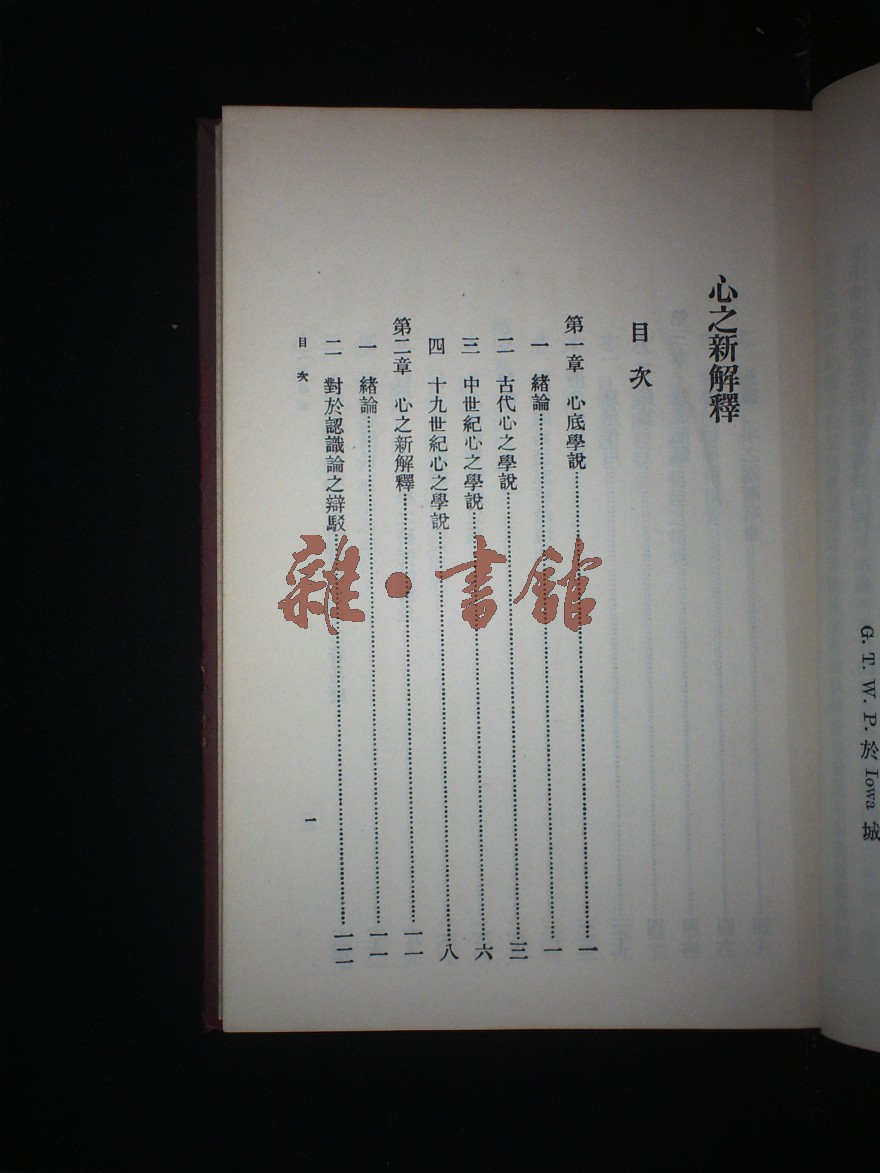 G. T. W. P. 於 Iowa 城
心之新解釋
目次
第一章 心底學說……一
一 緒論……一
二 古代心之學說……三
三 中世紀心之學說……六
四 十九世紀心之學說……八
第二章 心之新解釋……一一
一 緒論……一一
二 對於認識論之辯駁……一二
目次
一
雜·書館